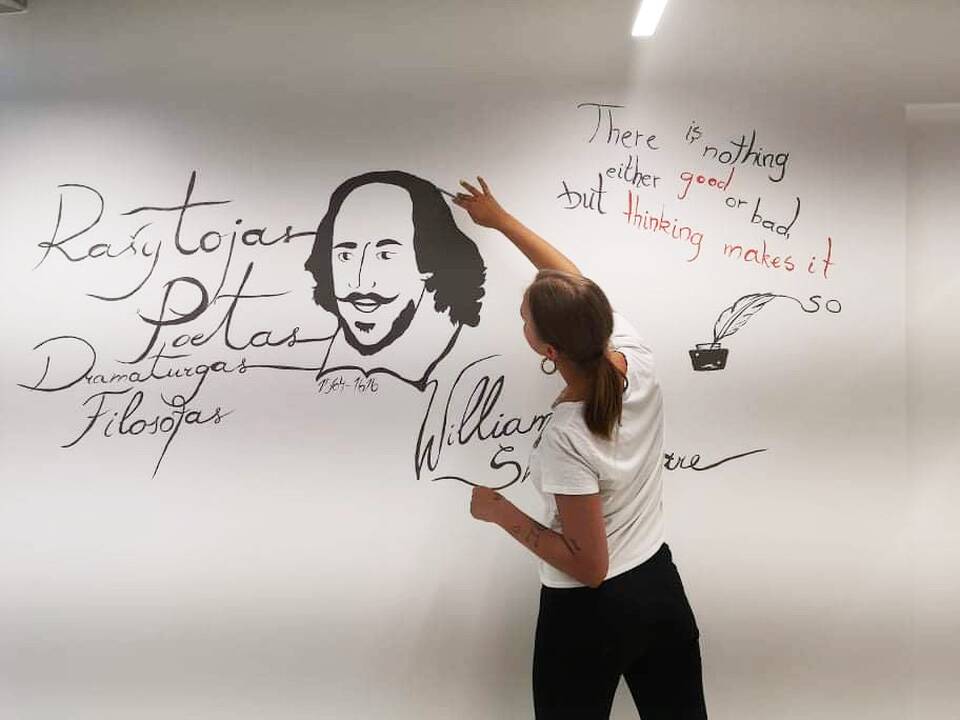 Rašytojas
Poetas
Dramaturgas
Filosofas
1564-1616
William
There is nothing
either good
or bad,
but thinking makes it
so